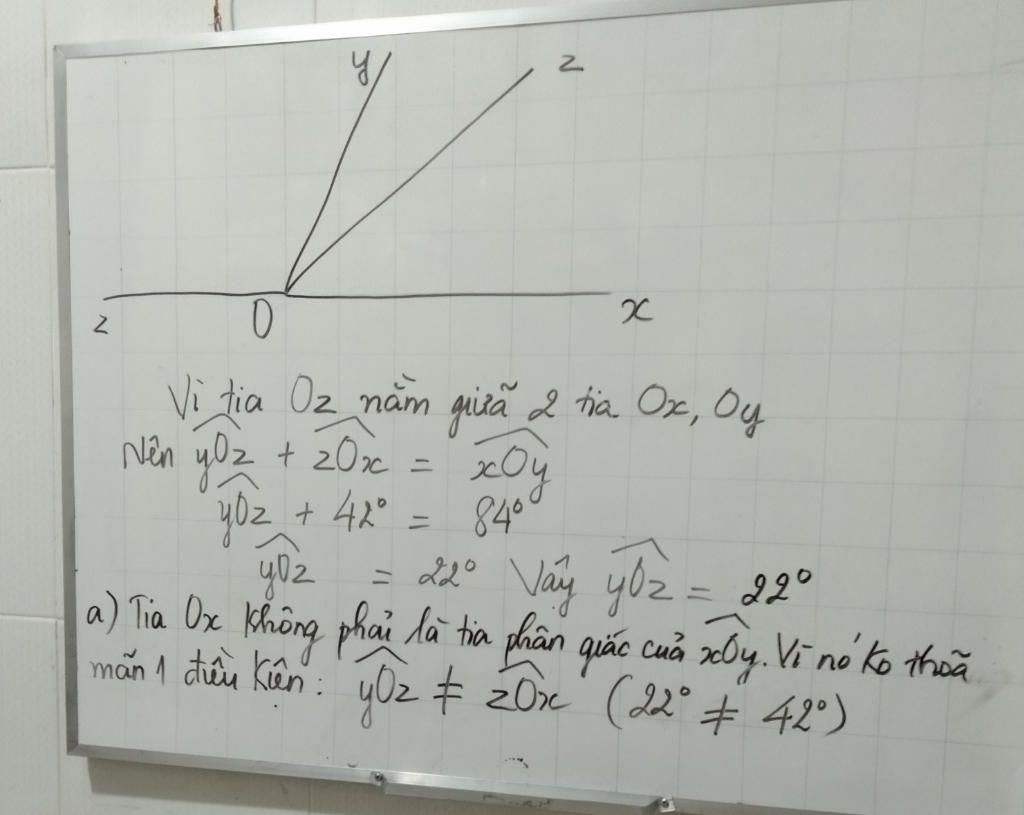 y z
z O x
Vì tia Oz nằm giữa 2 tia Ox, Oy
Nên yOz + zOx = xOy
yOz + 42° = 84°
yOz = 22° Vậy yOz = 22°
a) Tia Ox không phải là tia phân giác của xOy. Vì nó ko thoã
mãn 1 điều kiện: yOz ≠ zOx (22° ≠ 42°)